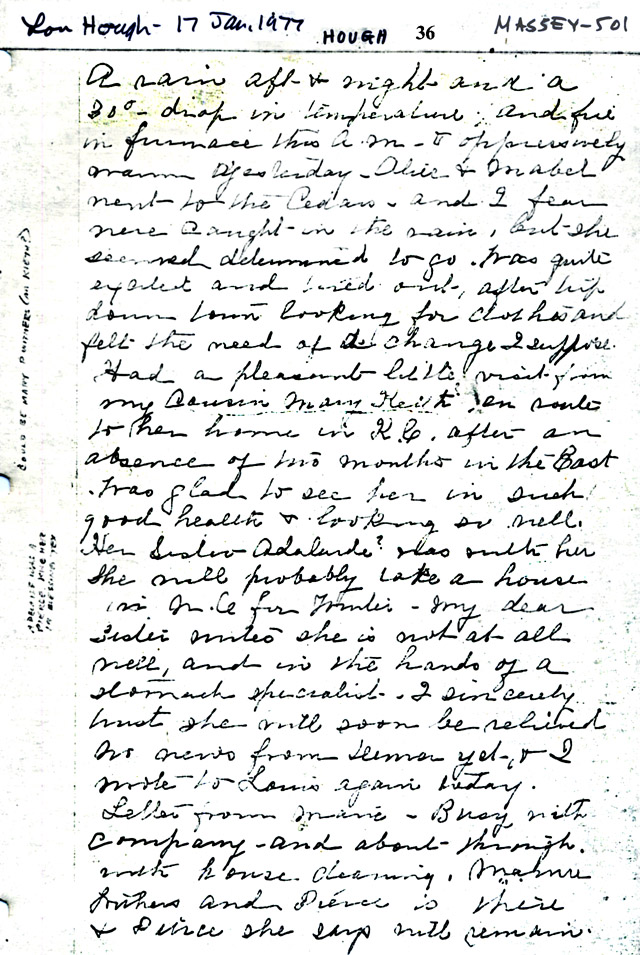 Lon Hough - 17 Jan, 1977 HOUGH 36 MASSEY-501
A rain aft & night and a
30° drop in temperature, and fire
in furnace this A.M. - & oppressively
warm yesterday - Olie & Mabel
went to the Cedars - and I fear
were caught in the rain, but she
seemed determined to go. Was quite
excited and tired out, after trip
down town looking for clothes and
felt the need of a change I suppose.
Had a pleasant little visit from
my Cousin Mary Keith, en route
to her home in K.C. after an
absence of two months in the East
. Was glad to see her in such
good health & looking so well.
Her sister Adalaide? was with her
She will probably take a house
in K.C for Winter - My dear
sister writes she is not at all
well, and in the hands of a
stomach specialist. I sincerely
trust she will soon be relieved
No news from yet, & I
wrote to Louis again today.
Letter from Marie - Busy with
company - and about through
with house cleaning.
and Pierce is there
& Pierce she says will remain.
COULD BE MARY